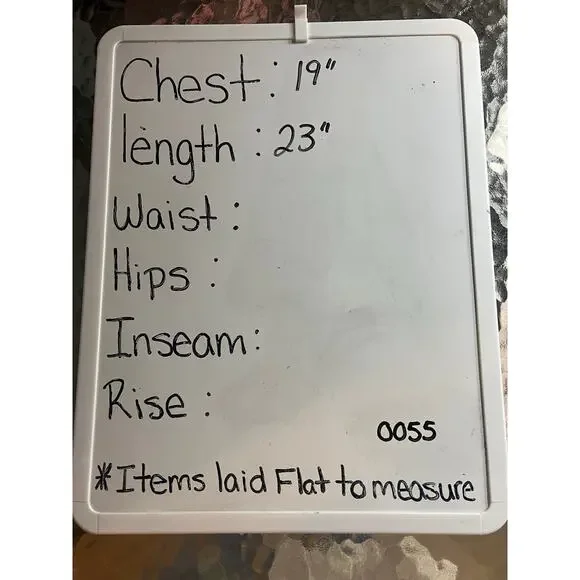 Chest: 19"
length: 23"
Waist:
Hips:
Inseam:
Rise:
0055
*Items laid Flat to measure